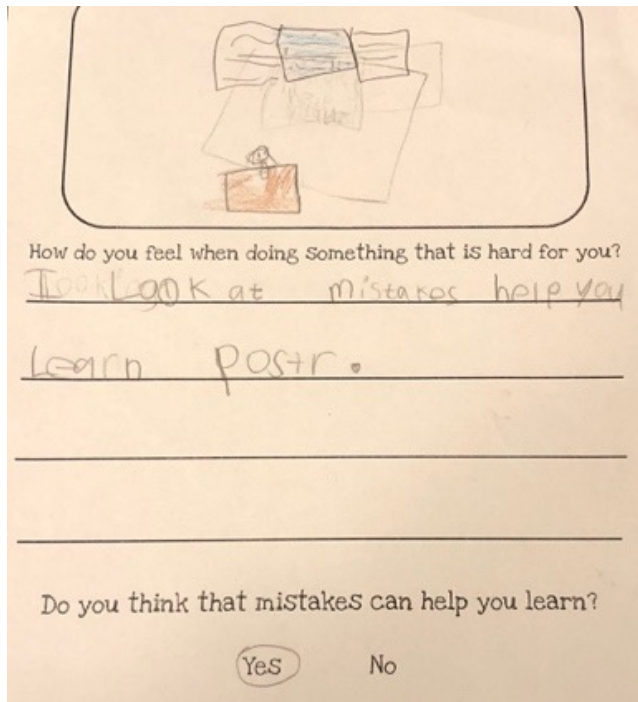 How do you feel when doing something that is hard for you?
I Look at mistakes help you
Learn postr.
Do you think that mistakes can help you learn?
Yes No